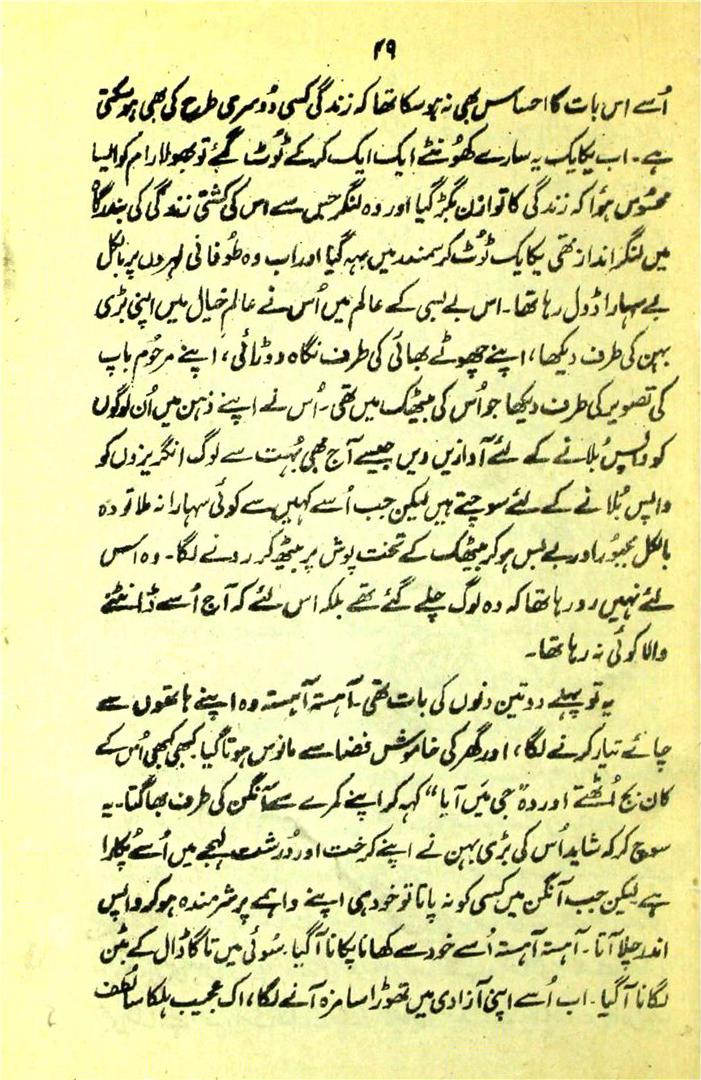 ۴۹
اُسے اس بات کا احساس بھی نہ ہو سکا تھا کہ زندگی کسی دُوسری طرح کی بھی ہو سکتی
ہے۔ اب یکایک یہ سارے کھُونٹے ایک ایک کر کے ٹوٹ گئے تو بھولا رام کو ایسا
محسُوس ہوُا کہ زندگی کا توازن بگڑ گیا اور وہ لنگر جس سے اس کی کشتی زندگی کی بندرگاہ
میں لنگر انداز تھی یکایک ٹوُٹ کر سمندر میں بہہ گیا اور اب وہ طوُفانی لہروں پر بالکل
بے سہارا ڈول رہا تھا۔ اس بے بسی کے عالم میں اُس نے عالمِ خیال میں اپنی بڑی
بہن کی طرف دیکھا، اپنے چھوٹے بھائی کی طرف نگاہ دوڑائی، اپنے مرحُوم باپ
کی تصویر کی طرف دیکھا جو اُس کی بیٹھک میں تھی۔ اُس نے اپنے ذہن میں اُن لوگوں
کو واپس بُلانے کے لئے آوازیں دیں جیسے آج بھی بُہت سے لوگ انگریزوں کو
واپس بُلانے کے لئے سوچتے ہیں لیکن جب اُسے کہیں سے کوئی سہارا نہ ملا تو وہ
بالکل مجبُور اور بے بس ہو کر بیٹھک کے تخت پوش پر بیٹھ کر رونے لگا۔ وہ اس
لئے نہیں رو رہا تھا کہ وہ لوگ چلے گئے تھے بلکہ اس لئے کہ آج اُسے ڈانٹنے
والا کوئی نہ رہا تھا۔
یہ تو پہلے دو تین دنوں کی بات تھی۔ آہستہ آہستہ وہ اپنے ہاتھوں سے
چائے تیار کرنے لگا، اور گھر کی خاموش فضا سے مانوس ہوتا گیا۔ کبھی کبھی اُس کے
کان بج اُٹھتے اور وہ "جی میَں آیا" کہہ کر اپنے کمرے سے آنگن کی طرف بھاگتا۔ یہ
سوچ کر کہ شاید اُس کی بڑی بہن نے اپنے کرخت اور دُرشت لہجے میں اُسے پُکارا
ہے لیکن جب آنگن میں کسی کو نہ پاتا تو خود ہی اپنے واہمے پر شرمندہ ہو کر واپس
اندر چلا آتا۔ آہستہ آہستہ اُسے خود سے کھانا پکانا آ گیا۔ سُوئی میں تاگا ڈال کے بٹن
لگانا آ گیا۔ اب اُسے اپنی آزادی میں تھوڑا سا مزہ آنے لگا، اک عجیب ہلکا سا لُطف